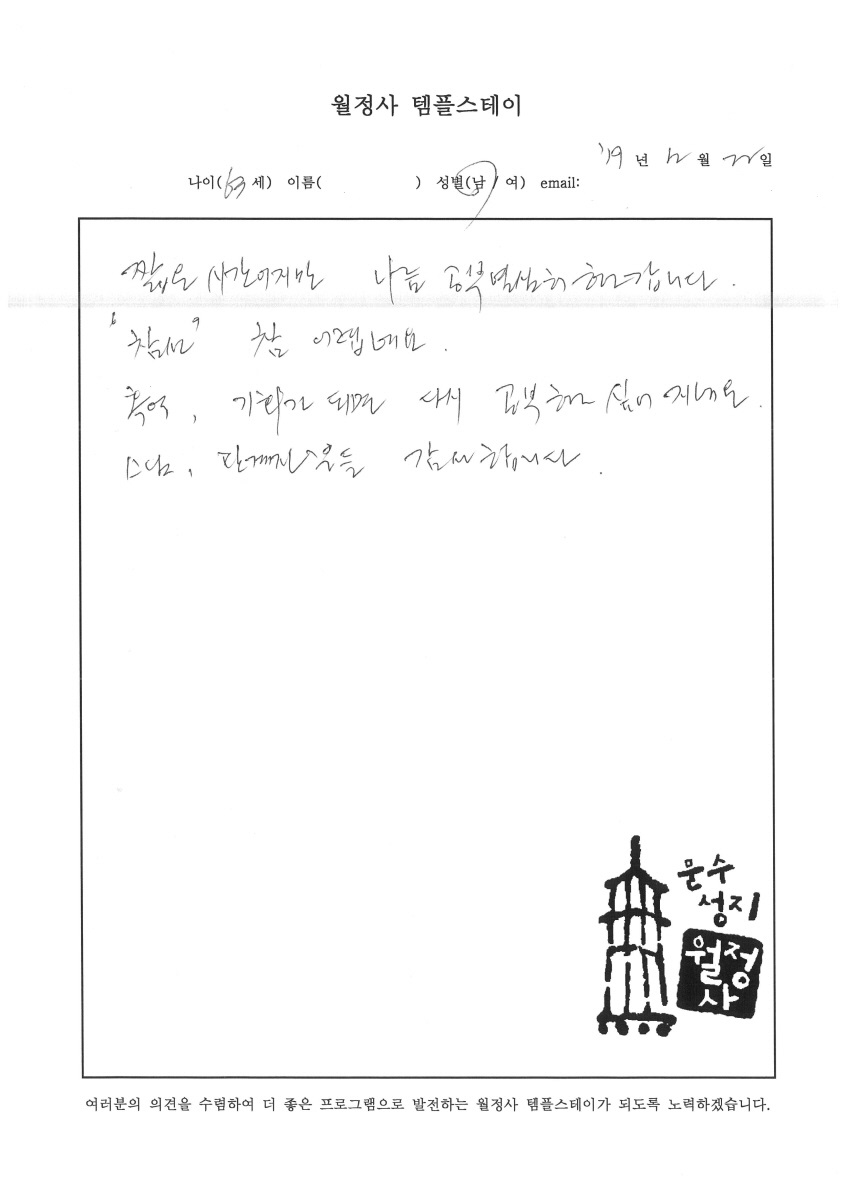 월정사 템플스테이
'19 년 12 월 22 일
나이(63 세) 이름( ) 성별(남 / 여) email:
짧은 시간이지만 나름 열심히 하고 갑니다.
"참선" 참 어렵네요.
혹여, 기회가 되면 다시 공부하고 싶어 지네요.
스님, 관계자분들 감사합니다.
문수
성지
월정
사
여러분의 의견을 수렴하여 더 좋은 프로그램으로 발전하는 월정사 템플스테이가 되도록 노력하겠습니다.